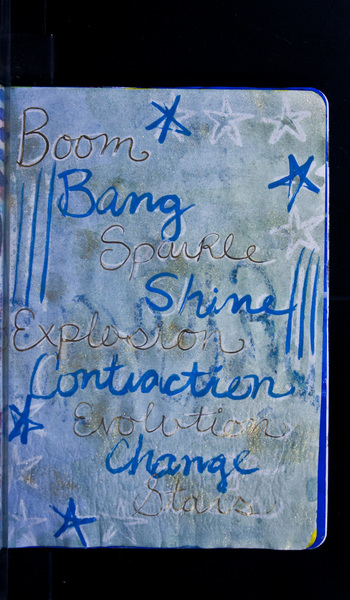 Boom
Bang
Sparkle
Shine
Explosion
Contraction
Evolution
Change
Stars